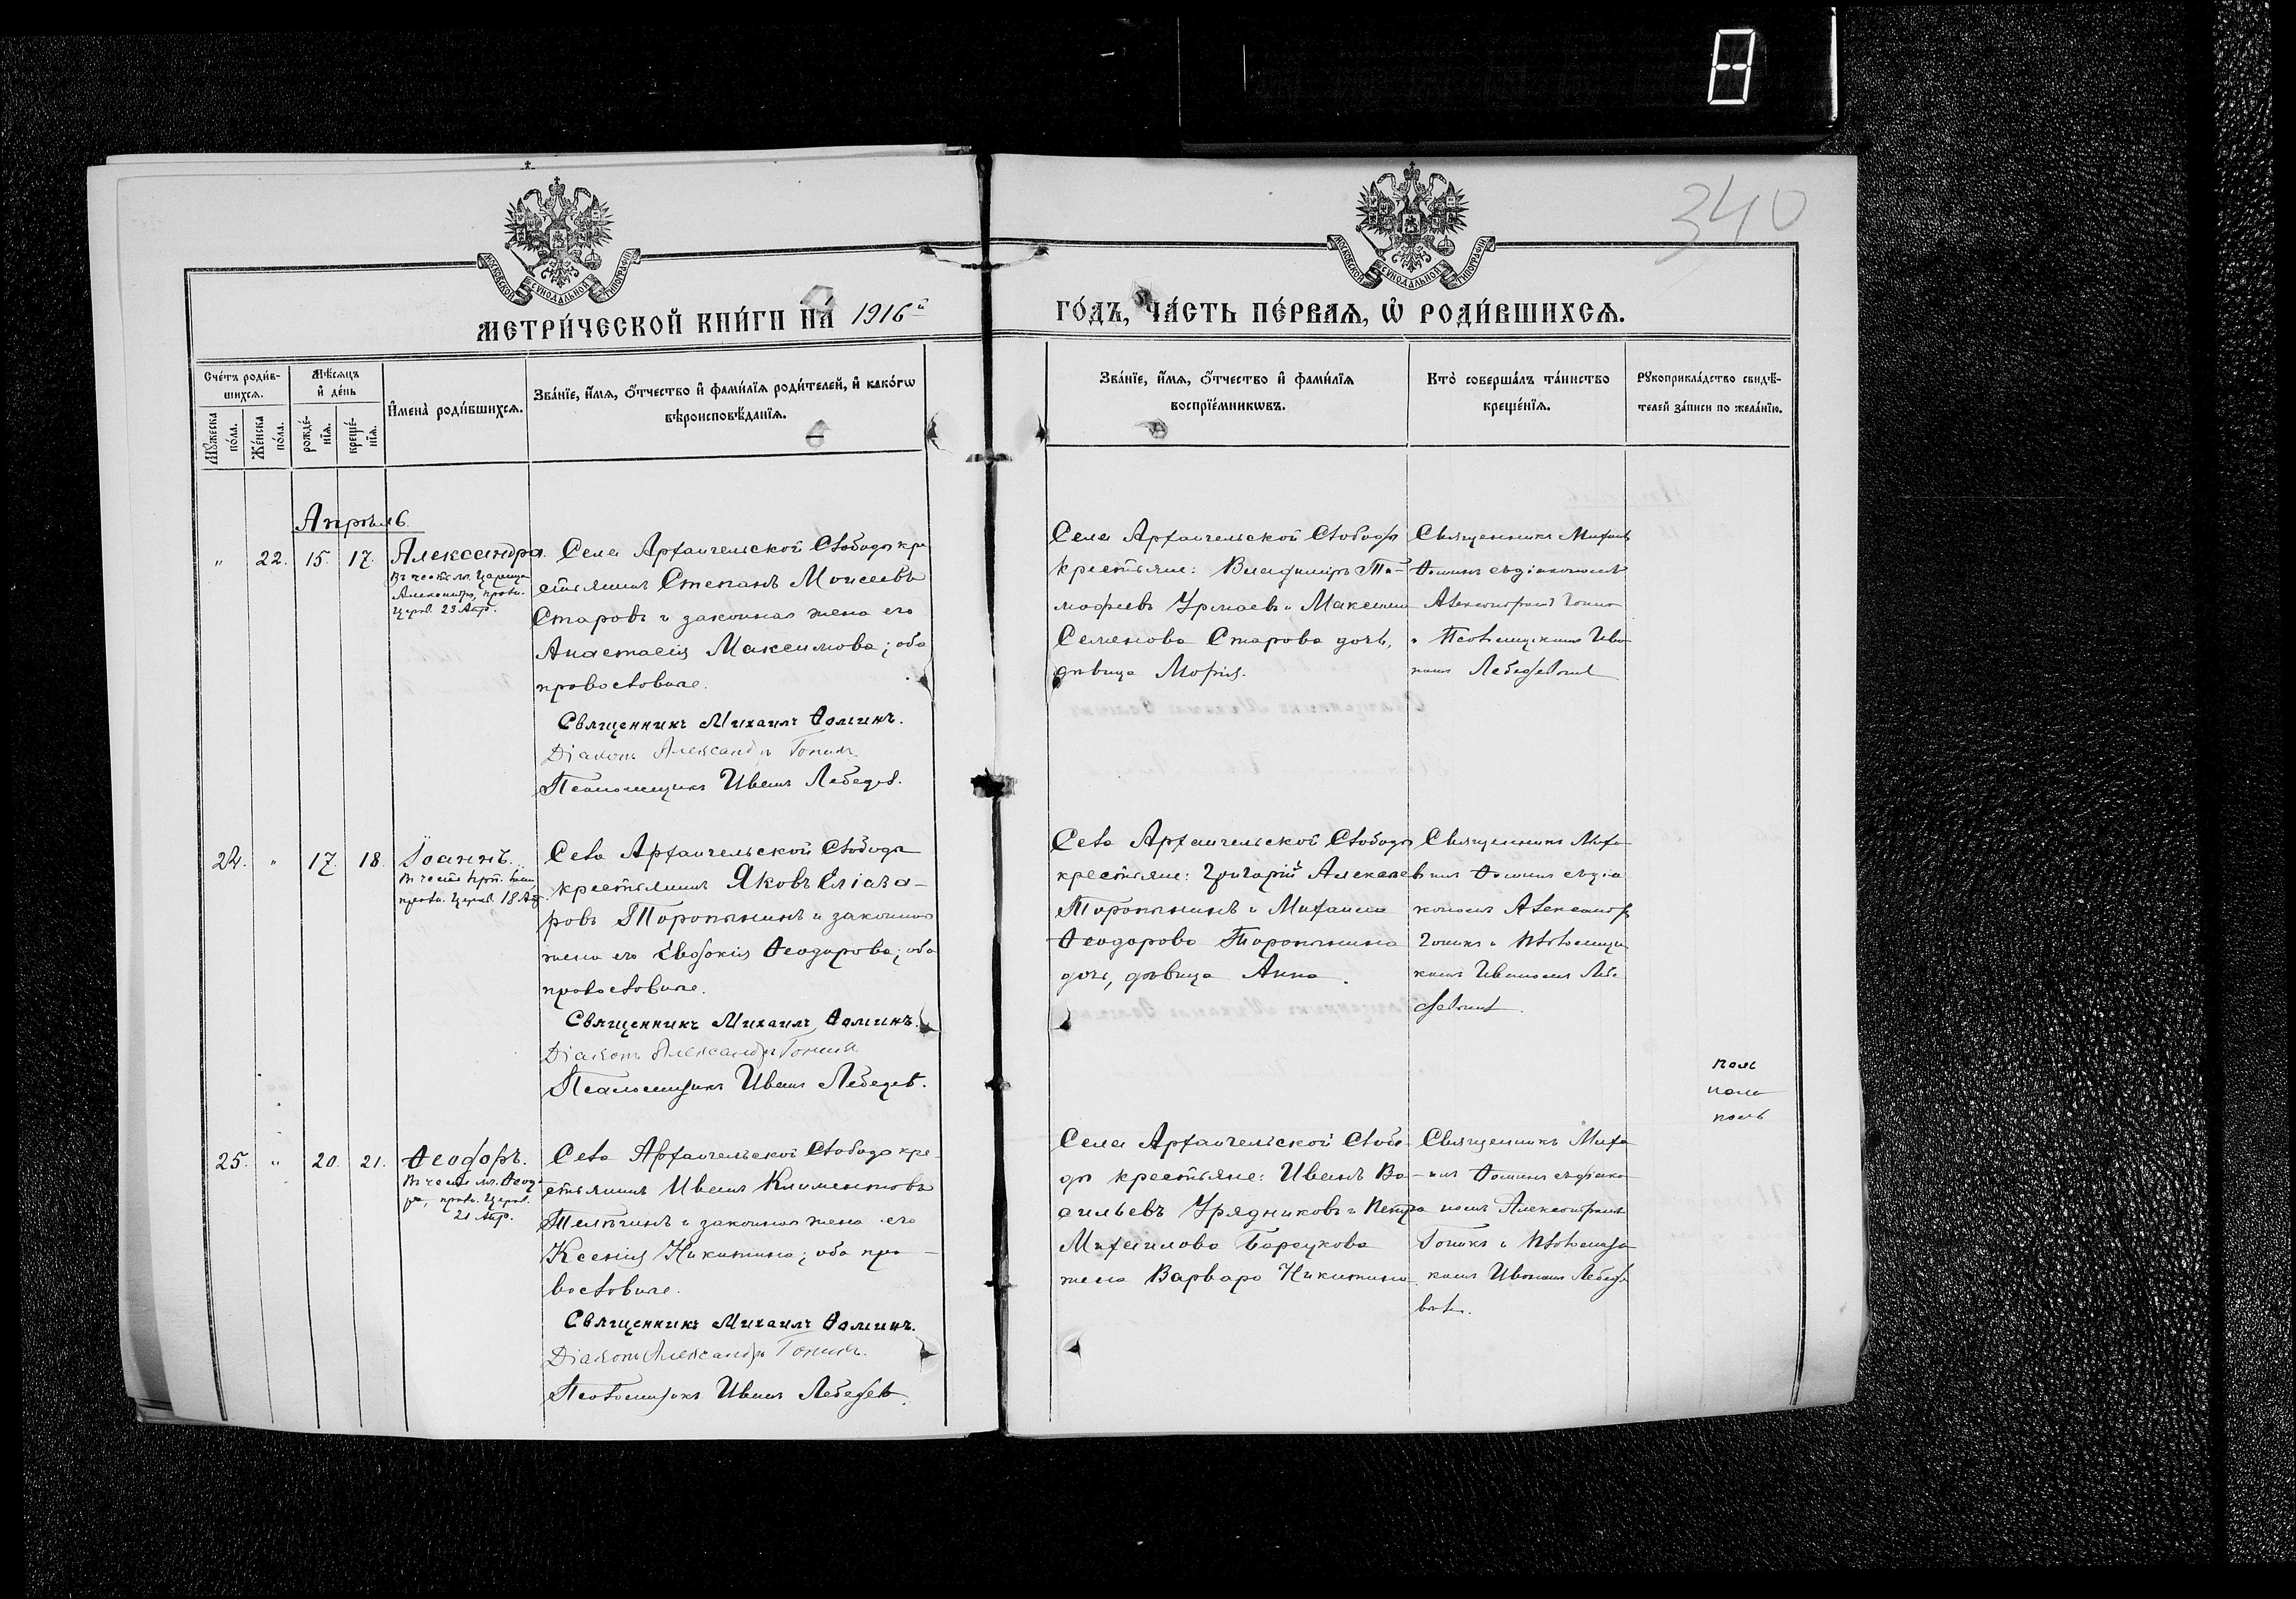 340
МОСКОВСКОЙ СѴНОДАЛЬНОЙ ТИПОГРАФІИ
МОСКОВСКОЙ СѴНОДАЛЬНОЙ ТИПОГРАФІИ
МЕТРИ́ЧЕСКОЙ КНИ́ГИ НА́ 1916й
ГО́ДЪ, ЧА́СТЬ ПЕ́РВАЯ, Ѡ҆ РОДИ́ВШИХСЯ.
Сче́тъ роди́в-
шихся.
Мѣ́сяцъ
и҆ де́нь
Мꙋ́жеска
по́ла.
Же́нска
по́ла.
рожде́-
нїя.
креще́-
нїя.
И҆мена̀ роди́вшихся.
Зва́нїе, и҆́мя, ѻ҆́тчество и҆ фами́лїя роди́телей, и҆ како́гѡ
вѣроисповѣ́данїя.
Зва́нїе, и҆́мя, ѻ҆́тчество и҆ фами́лїя
воспрїе́мникѡвъ.
Кто̀ соверша́лъ та́инство
креще́нїя.
Рꙋкоприкла́дство свидѣ́-
телей за́писи по жела́нїю.
Апрѣль
" 22. 15. 17. Александра.
Въ честь мц. Царицы
Александры, празн.
Церков. 23 Апр.
Села Архангельской Слободы кре
стьянинъ Степанъ Моисеевъ
Старовъ и законная жена его
Анастасія Максимова; оба
православные.
Священникъ Михаилъ Ѳоминъ.
Діаконъ Александръ Тонинъ
Псаломщикъ Иванъ Лебедев.
Села Архангельской Слободы
крестьяне: Владиміръ Ти-
мофеевъ Урмаевъ и Максима
Семенова Старова дочь,
дѣвица Марія.
Священникъ Михаилъ
Ѳоминъ съ діакономъ
Александромъ
и Псаломщикомъ Ива
номъ Лебедевымъ
24. " 17. 18. Іоаннъ.
Въ честь
празн. Церков. 18 Апр.
Села Архангельской Слободы
крестьянинъ Яковъ Еліаза-
ровъ Торопынинъ и законная
жена его Евдокія Ѳеодорова; оба
православные.
Священникъ Михаилъ Ѳоминъ.
Діаконъ Александръ Тонинъ
Псаломщикъ Иванъ Лебедев.
Села Архангельской Слободы
крестьяне: Григорій Алексеев
Торопынинъ и Михаила
Ѳеодорова Торопынина
дочь, дѣвица Анна.
Священникъ Миха
илъ Ѳоминъ съ діа
кономъ Александр
и Псаломщи
комъ Иваномъ Лебе
девымъ.
25. " 20. 21. Ѳеодоръ.
Въ честь мч. Ѳеодо
ра, празн. Церков.
21 Апр.
Села Архангельской Слободы кре
стьянинъ Иванъ Климентовъ
Телѣгинъ и законная жена его
Ксенія Никитина; оба пра-
вославные.
Священникъ Михаилъ Ѳоминъ.
Діаконъ Александръ Тонинъ.
Псаломщикъ Иванъ Лебедев.
Села Архангельской Слобо-
ды крестьяне: Иванъ Ва-
сильевъ Урядниковъ и Петра
Михаилова Барсукова
жена Варвара Никитина
Священникъ Миха
илъ Ѳоминъ съ діако
номъ Александромъ
и Псаломщи
комъ Иваномъ Лебеде